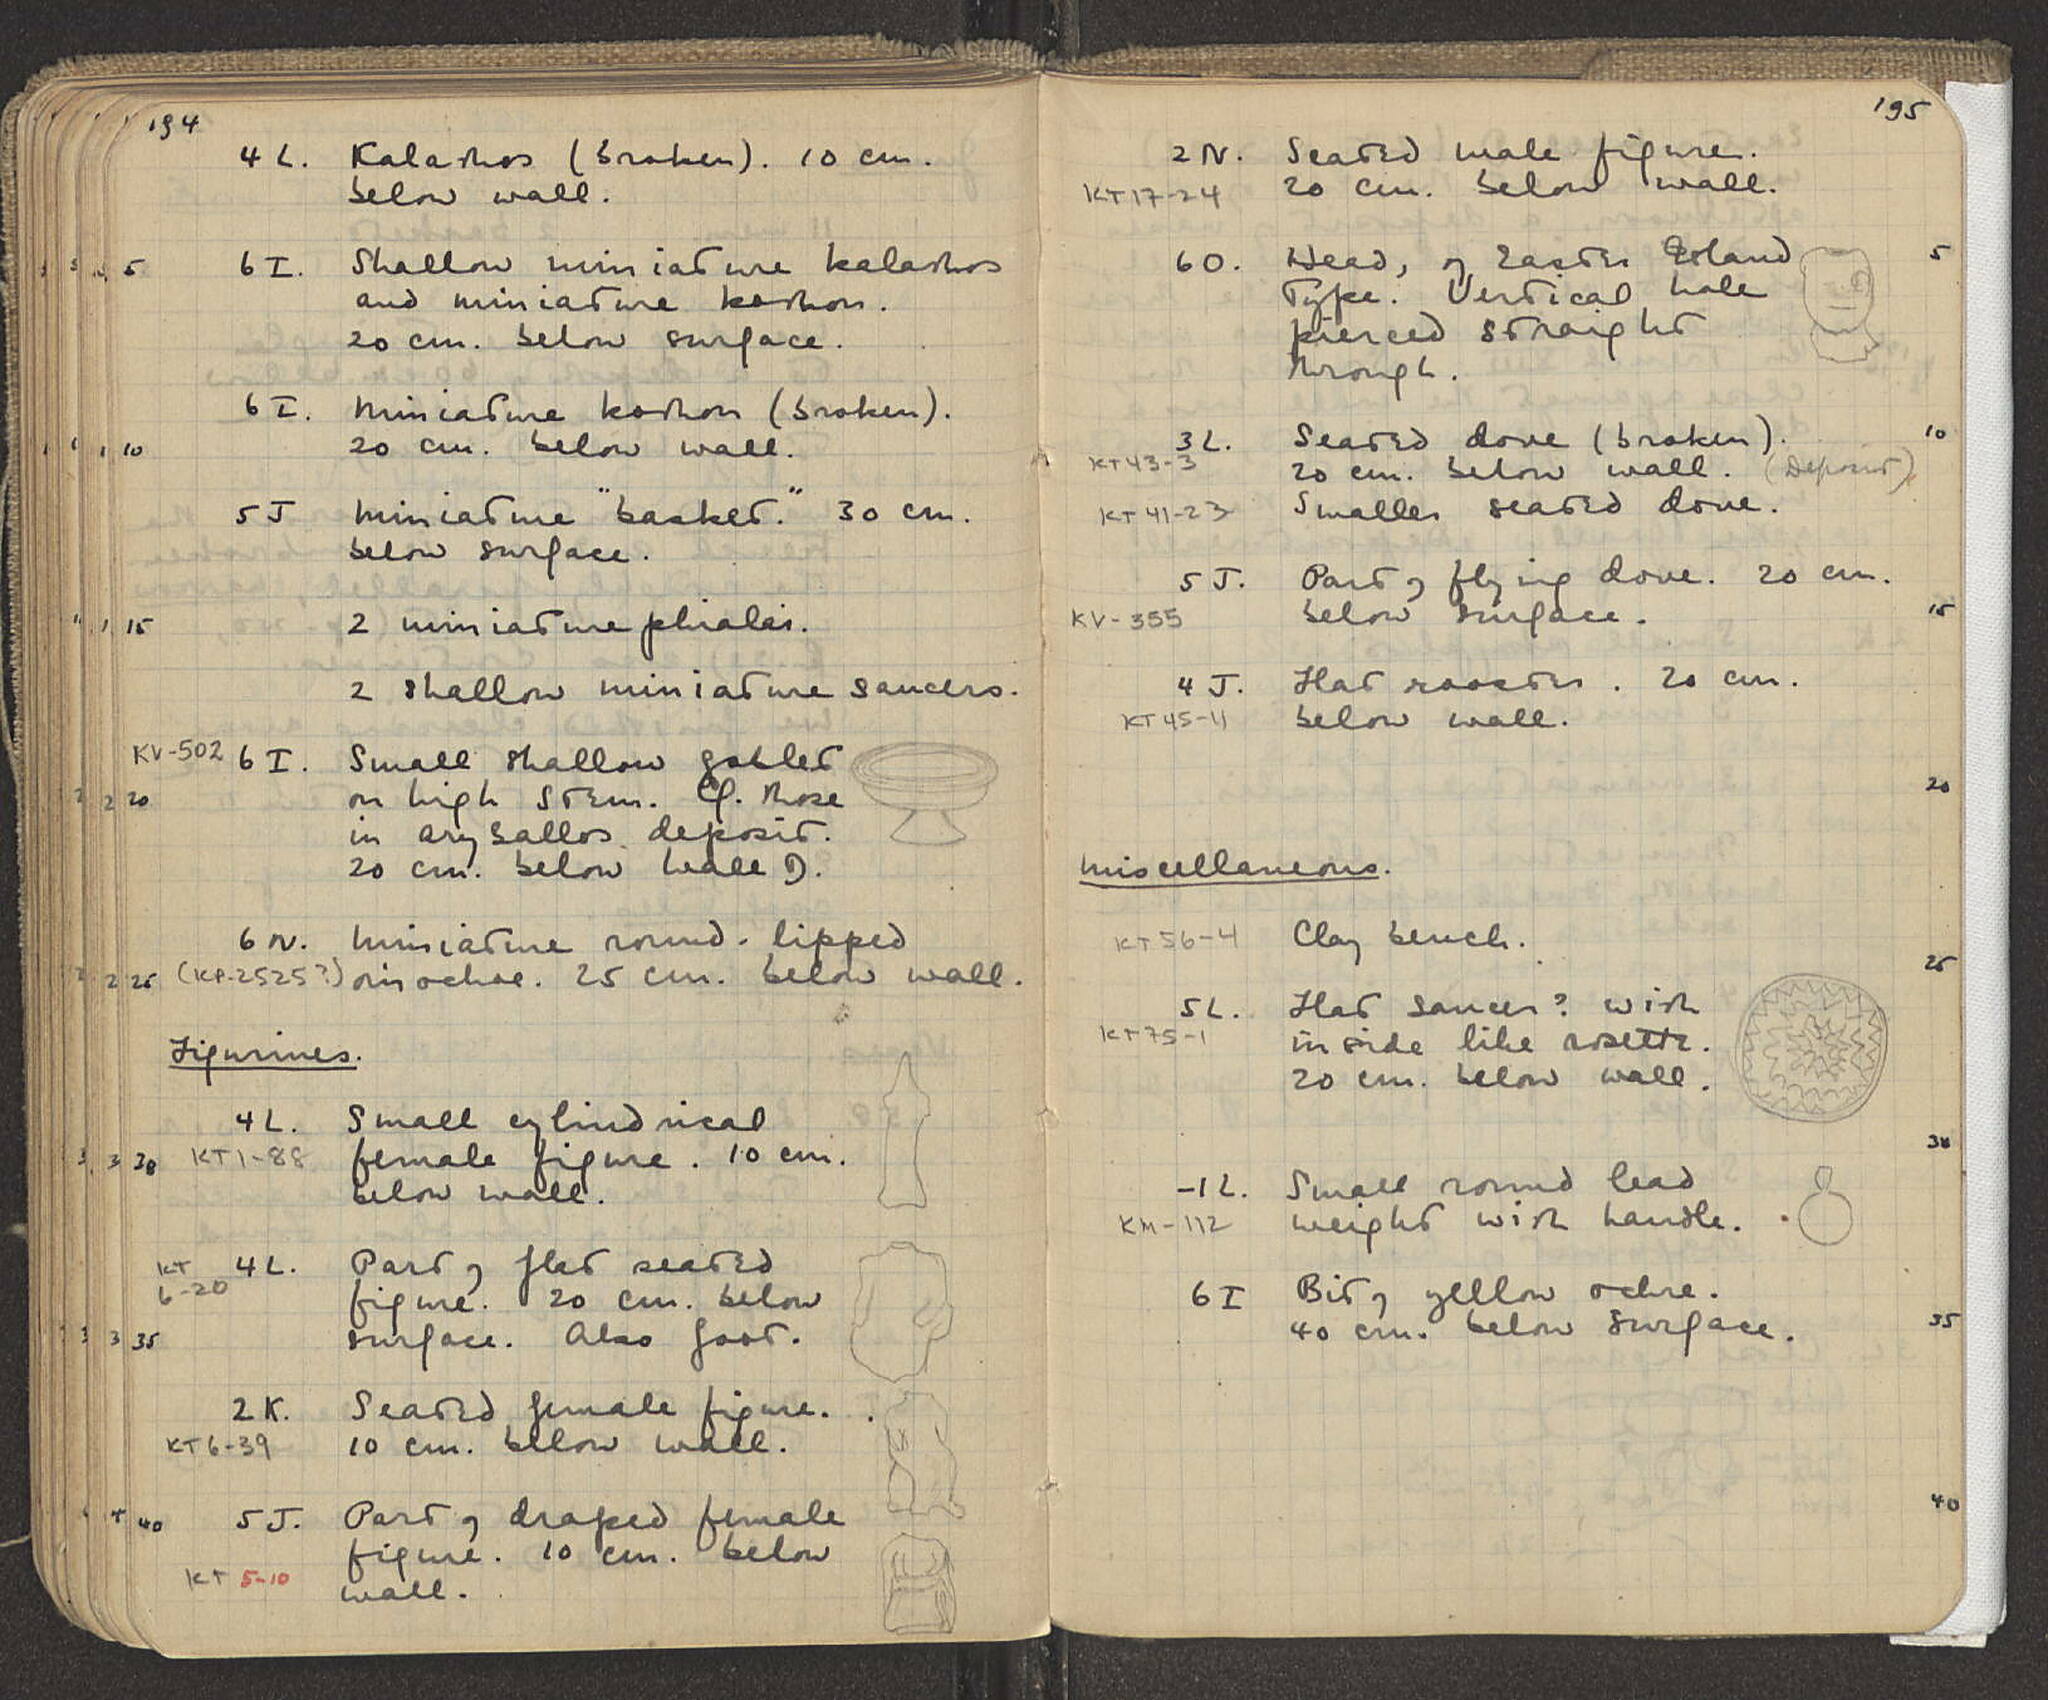 194
4 L. Kalathos (broken). 10 cm.
below wall.
5 6 I. Shallow miniature kalathos
and miniature kothon.
20 cm. below surface.
6 I. Miniature kothon (broken).
10 20 cm. below wall.
5 J Miniature "basket." 30 cm.
below surface.
15 2 miniature phialai.
2 shallow miniature saucers.
KV-502 6 I. Small shallow goblet
20 on high stem. Cf. those
in aryballos deposit.
20 cm. below wall D.
6 N. Miniature round-lipped
25 (KP-2525?) oinochoe. 25 cm. below wall.
Figurines.
4 L. Small cylindrical
30 KT1-88 female figure. 10 cm.
below wall.
KT 6-20 4 L. Part of flat seated
figure. 20 cm. below
35 surface. Also foot.
2 K. Seated female figure.
KT6-39 10 cm. below wall.
40 5 J. Part of draped female
figure. 10 cm. below
KT 5-10 wall.
195
2 N. Seated male figure.
KT17-24 20 cm. below wall.
6 O. Head, of Easter Island 5
type. Vertical hole
pierced straight
through.
3 L. Seated dove (broken). 10
KT43-3 20 cm. below wall. (Deposit)
KT41-23 Smaller seated dove.
5 J. Part of flying dove. 20 cm.
KV-355 below surface. 15
4 J. Flat rooster. 20 cm.
KT45-11 below wall.
20
Miscellaneous.
KT56-4 Clay bench.
25
5 L. Flat saucer? with
KT75-1 inside like rosette.
20 cm. below wall.
30
-1 L. Small round lead
KM-112 weight with handle.
6 I Bit of yellow ochre.
40 cm. below surface. 35
40